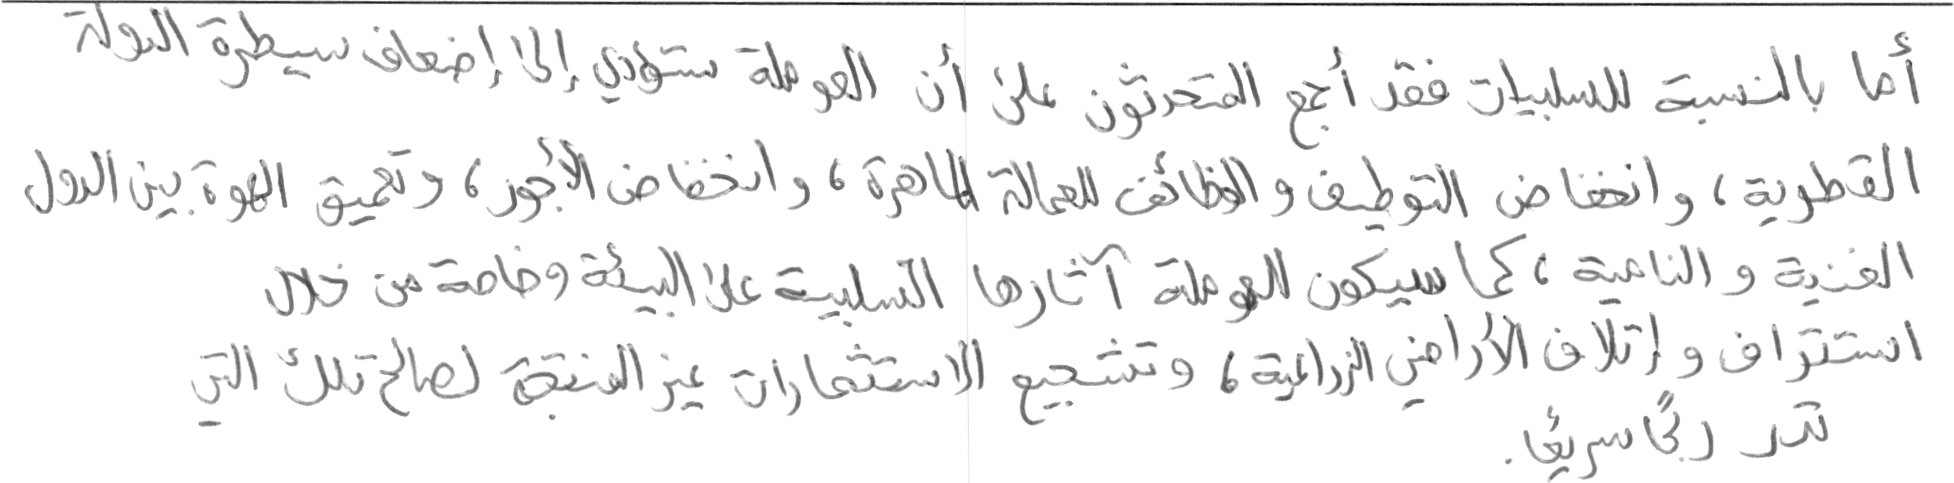 أما بالنسبة للسلبيات فقد أجمع المتحدثون على أن العولمة ستؤدي إلى إضعاف سيطرة الدولة
القطرية، وانخفاض التوظيف والوظائف للعمالة الماهرة، وانخفاض الأجور، وتعميق الهوة بين الدول
الغنية والنامية، كما سيكون للعولمة آثارها السلبية على البيئة وخاصة من خلال
استنزاف وإتلاف الأراضي الزراعية، وتشجيع الاستثمارات غير المنتجة لصالح تلك التي
تدر ربحًا سريعًا.